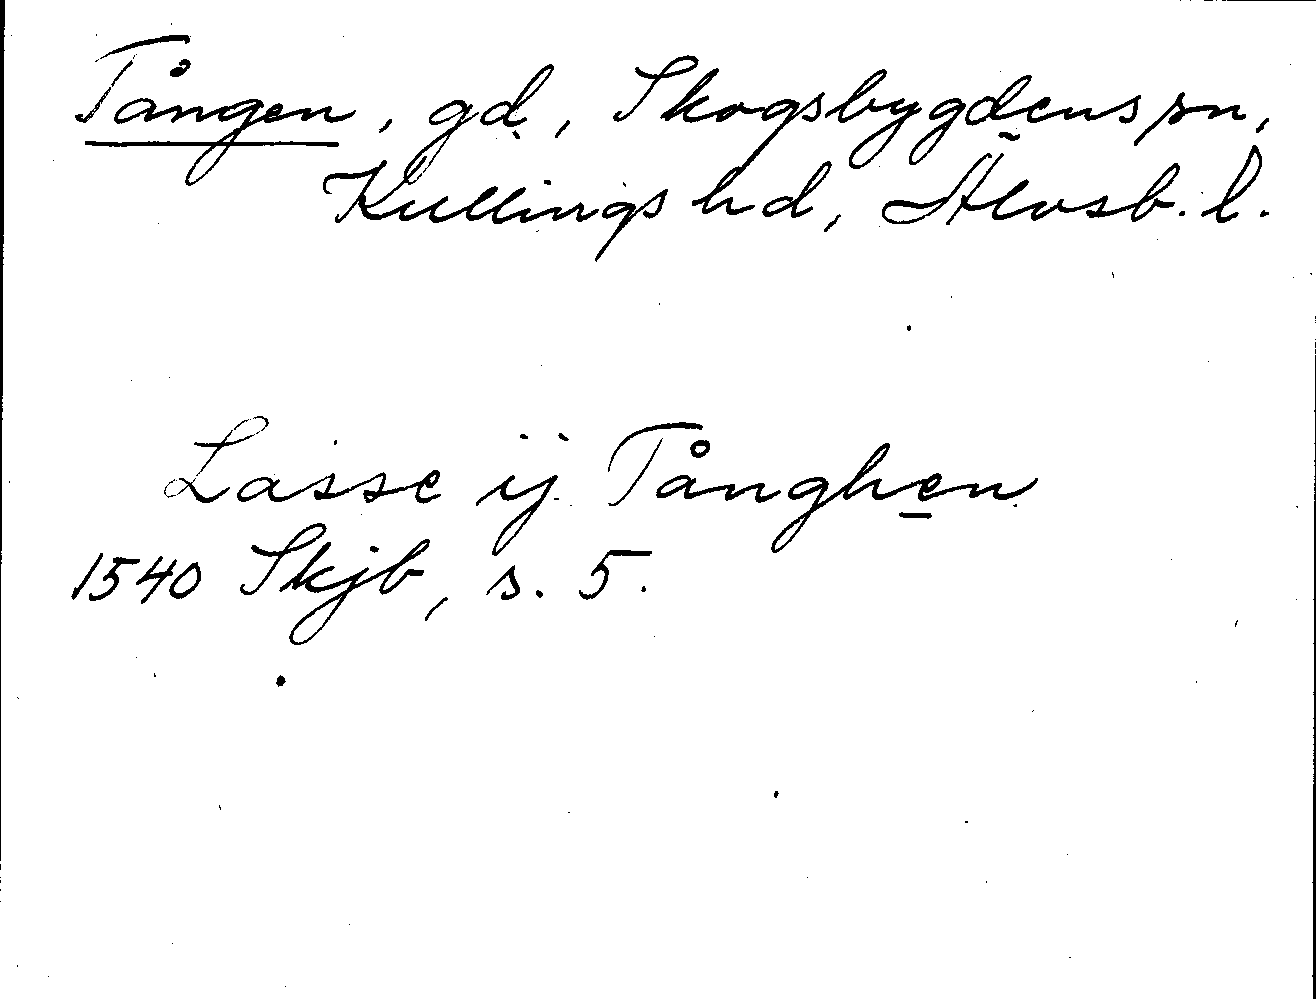 Tången, gd., Skogsbygdens sn,
Kullings hd, Älvsb. l.
Lasse ij Tånghen
1540 Skjb, s. 5.